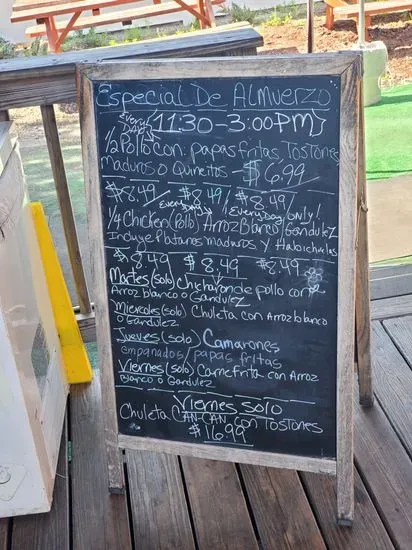 Especial De Almuerzo
Every Day
11:30-3:00PM
1/2 Pollo con papas fritas Tostones
maduros o Quineitos - $6.99
$8.49 $8.49 $8.49
Everybody Everyday only!
1/4 Chicken (Pollo) Arroz Blanco Gandulez
Incluye Platanos maduros y Habichulas
$8.49 $8.49 $8.49
Martes (solo) Chicharon de pollo con
Arroz blanco o Gandulez
Miercoles (solo) Chuleta con Arroz blanco
o Gandulez
Jueves (solo) Camarones
empanados/papas fritas
Viernes (solo) Carne frita con Arroz
Blanco o Gandulez
Viernes solo
Chuleta CAN-CAN con Tostones
$16.99